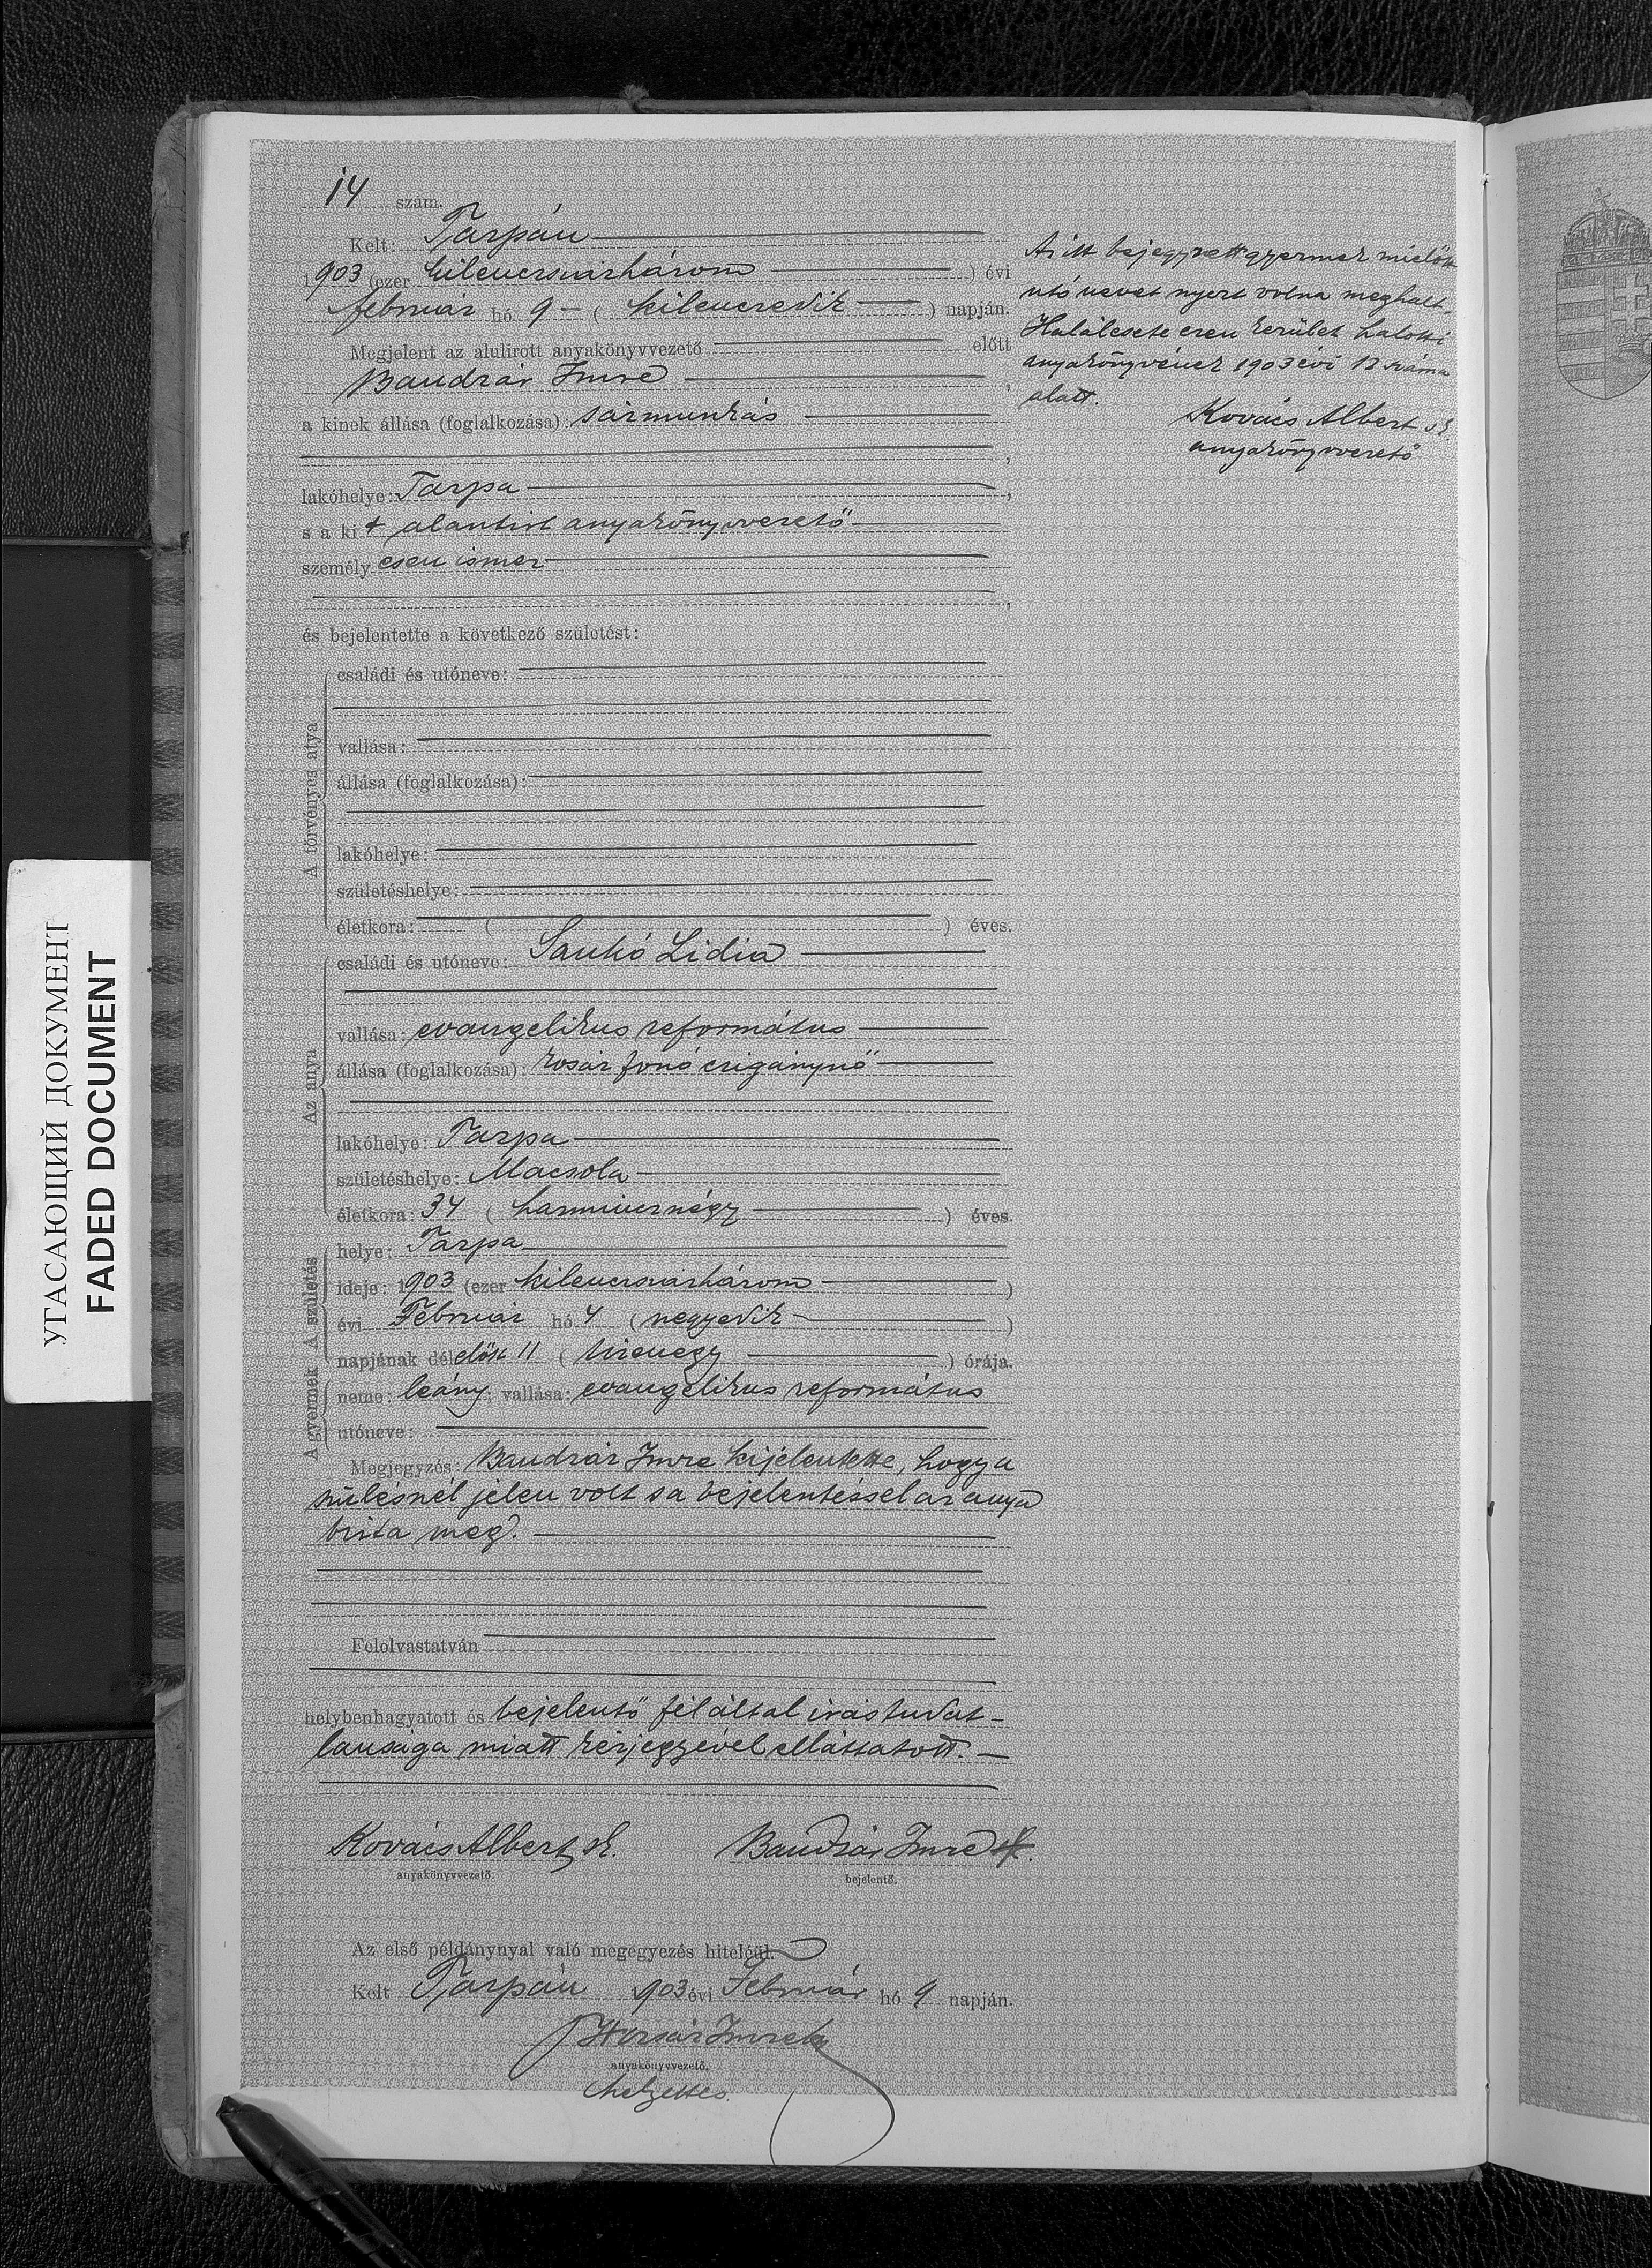 УГАСАЮЩИЙ ДОКУМЕНТ
FADED DOCUMENT
14 szám.
Kelt: Tarpán
1903 (ezer kilenczszázhárom) évi
február hó 9 - (kilenczedik) napján.
Megjelent az alulirott anyakönyvvezető előtt
Bandzár Imre,
a kinek állása (foglalkozása): sármunkás
,
lakóhelye: Tarpa,
s a kit alantirt anyakönyvvezető
személyesen ismer
,
és bejelentette a következő születést:
A törvényes atya
családi és utóneve:
vallása:
állása (foglalkozása):
lakóhelye:
születéshelye:
életkora: ( ) éves.
Az anya
családi és utóneve: Sankó Lidia
vallása: evangelikus református
állása (foglalkozása): kosár fonó czigánynő
lakóhelye: Tarpa
születéshelye: Macsola
életkora: 34 (harmincznégy) éves.
A gyermek A születés
helye: Tarpa
ideje: 1903 (ezer kilenczszázhárom)
évi Február hó 4 (negyedik)
napjának délelőtt 11 (tizenegy) órája.
neme: leány; vallása: evangelikus református
utóneve:
Megjegyzés: Bandzár Imre kijelentette, hogy a
szülésnél jelen volt s a bejelentéssel az anya
bizta meg.
Felolvastatván
helybenhagyatott és bejelentő fél által irástudat-
lansága miatt kézjegyével elláttatott. -
Kovács Albert sk. Bandzár Imre
anyakönyvvezető. bejelentő.
Az első példánynyal való megegyezés hiteléül.
Kelt Tarpán 1903 évi Február hó 9 napján.
anyakönyvvezető.
helyettes.
Az itt bejegyzett gyermek mielőtt
utónevet nyert volna meghalt.
Halálesete ezen kerület halotti
anyakönyvének 1903 évi 12 száma
alatt.
Kovács Albert sk.
anyakönyvvezető